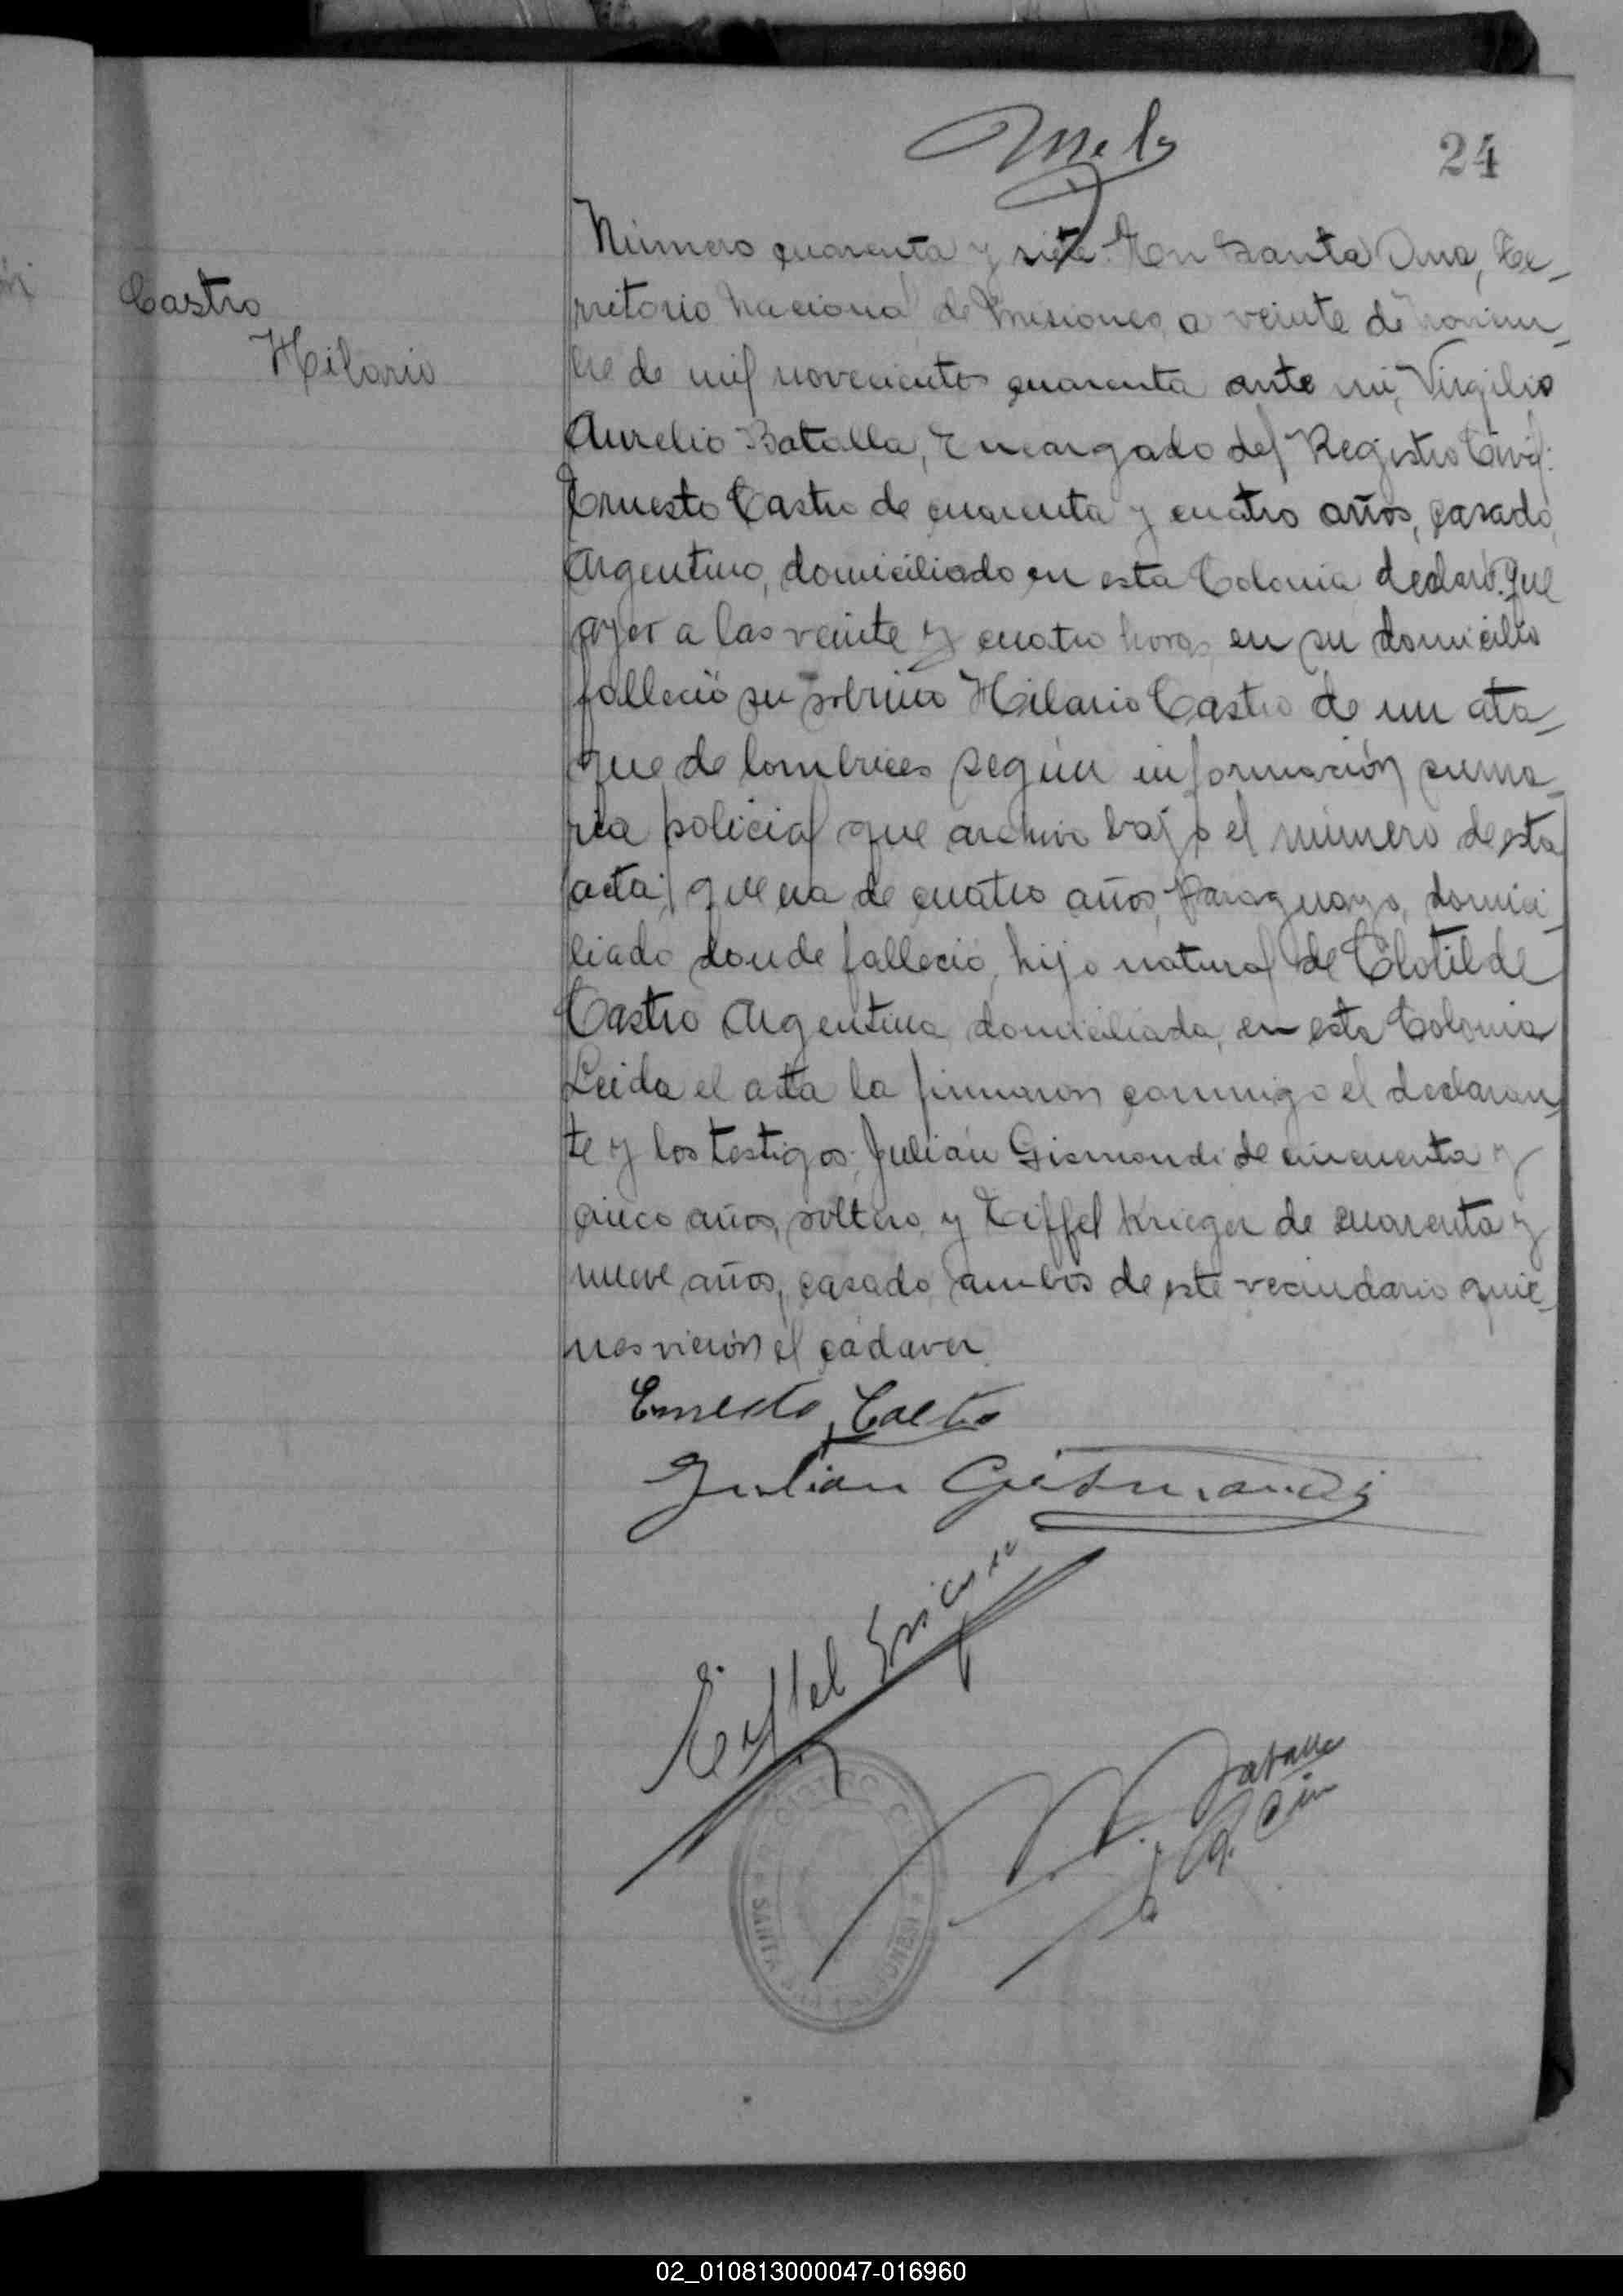 24
Castro
Hilario
Número cuarenta y siete. En Santa Ana, Te-
rritorio Nacional de Misiones, a veinte de noviem-
bre de mil novecientos cuarenta ante mi, Virgilio
Aurelio Batalla, Encargado del Registro Civil:
Ernesto Castro de cuarenta y cuatro años, casado,
Argentino, domiciliado en esta Colonia declaró: que
ayer a las veinte y cuatro horas en su domicilio
falleció su sobrino Hilario Castro de un ata-
que de lombrices según información suma-
ria policial que archivo bajo el número de esta
acta; que era de cuatro años, Paraguayo, domici-
liado donde falleció, hijo natural de Clotilde
Castro Argentina domiciliada, en esta Colonia
Leida el acta la firmaron conmigo el declaran-
te y los testigos: Julián Gismondi de cincuenta y
cinco años, soltero, y Eiffel Krieger de cuarenta y
nueve años, casado, ambos de este vecindario quie-
nes vieron el cadaver.
Ernesto Castro
Julian Gismondi
Eiffel Krieger
Batalla
REGISTRO CIVIL
SANTA ANA MISIONES
02_010813000047-016960